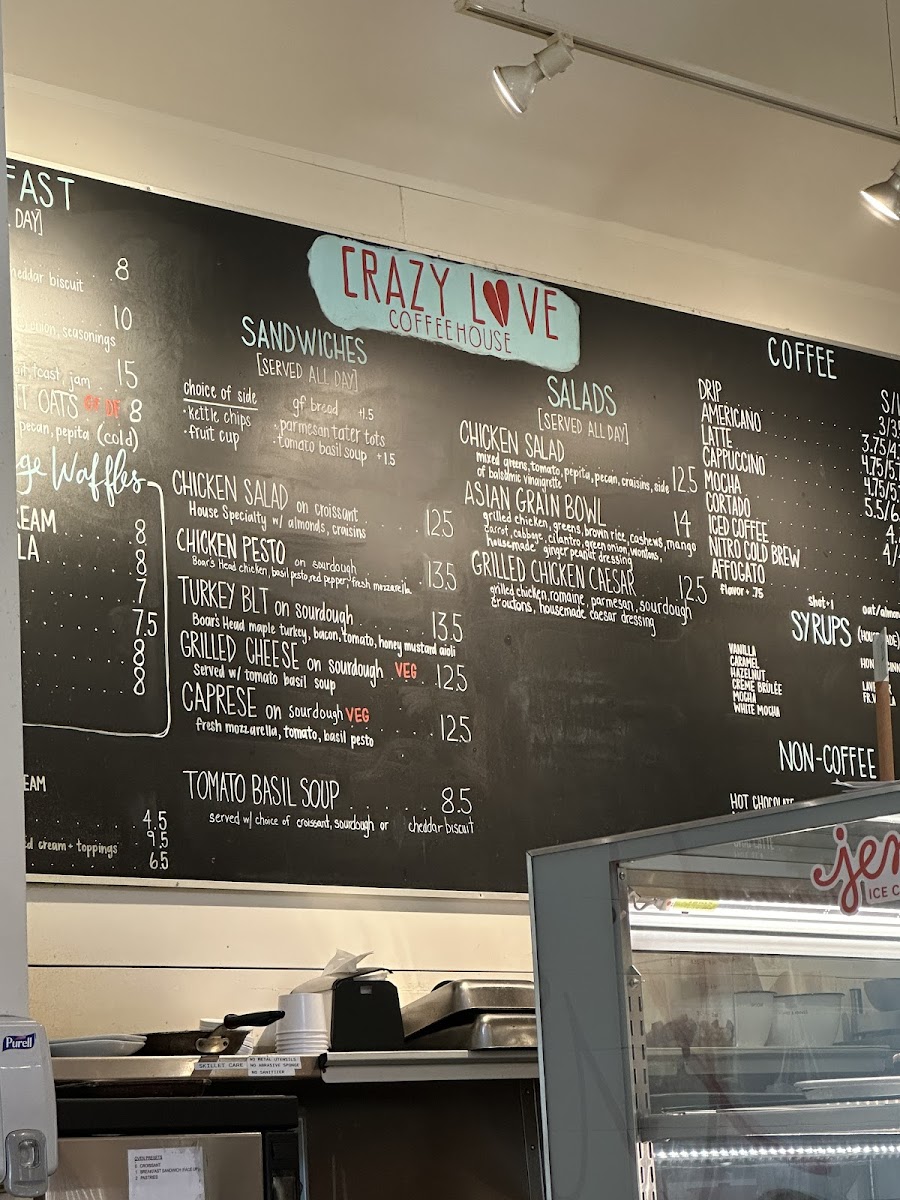 FAST
DAY]
8
cheddar biscuit
10
onion, seasonings
15
jam
OATS GF DF 8
pecan, pepita (cold)
Waffles
8
8
7
7.5
8
8
8
4.5
ed cream + toppings 9.5
6.5
CRAZY LOVE
COFFEEHOUSE
SANDWICHES
[SERVED ALL DAY]
choice of side
• kettle chips
• fruit cup
gf bread +.5
• parmesan tater tots
• tomato basil soup +1.5
CHICKEN SALAD on croissant 12.5
House Specialty w/ almonds, craisins
CHICKEN PESTO on sourdough 13.5
Boar's Head chicken, basil pesto, red pepper, fresh mozzarella
TURKEY BLT on sourdough 13.5
Boar's Head maple turkey, bacon, tomato, honey mustard aioli
GRILLED CHEESE on sourdough VEG 12.5
Served w/ tomato basil soup
CAPRESE on sourdough VEG 12.5
fresh mozzarella, tomato, basil pesto
TOMATO BASIL SOUP 8.5
served w/ choice of croissant, sourdough or cheddar biscuit
SALADS
[SERVED ALL DAY]
CHICKEN SALAD 12.5
mixed greens, tomato, pepita, pecan, craisins, side
of balsamic vinaigrette
ASIAN GRAIN BOWL 14
grilled chicken, greens, brown rice, cashews, mango
carrot, cabbage, cilantro, green onion, wontons,
housemade ginger peanut dressing
GRILLED CHICKEN CAESAR 12.5
grilled chicken, romaine, parmesan, sourdough
croutons, housemade caesar dressing
COFFEE
DRIP
AMERICANO
LATTE
CAPPUCCINO
MOCHA
CORTADO
ICED COFFEE
NITRO COLD BREW
AFFOGATO
flavor + .75
shot + 1
SYRUPS
VANILLA
CARAMEL
HAZELNUT
CRÈME BRÛLÉE
MOCHA
WHITE MOCHA
NON-COFFEE
HOT CHOCOLATE
ICE C
Purell
SKILLET CARE
NO METAL UTENSILS
NO ABRASIVE SPONGE
NO SANITIZER
OVEN PRESETS
CROISSANT
BREAKFAST SANDWICH
PASTRIES